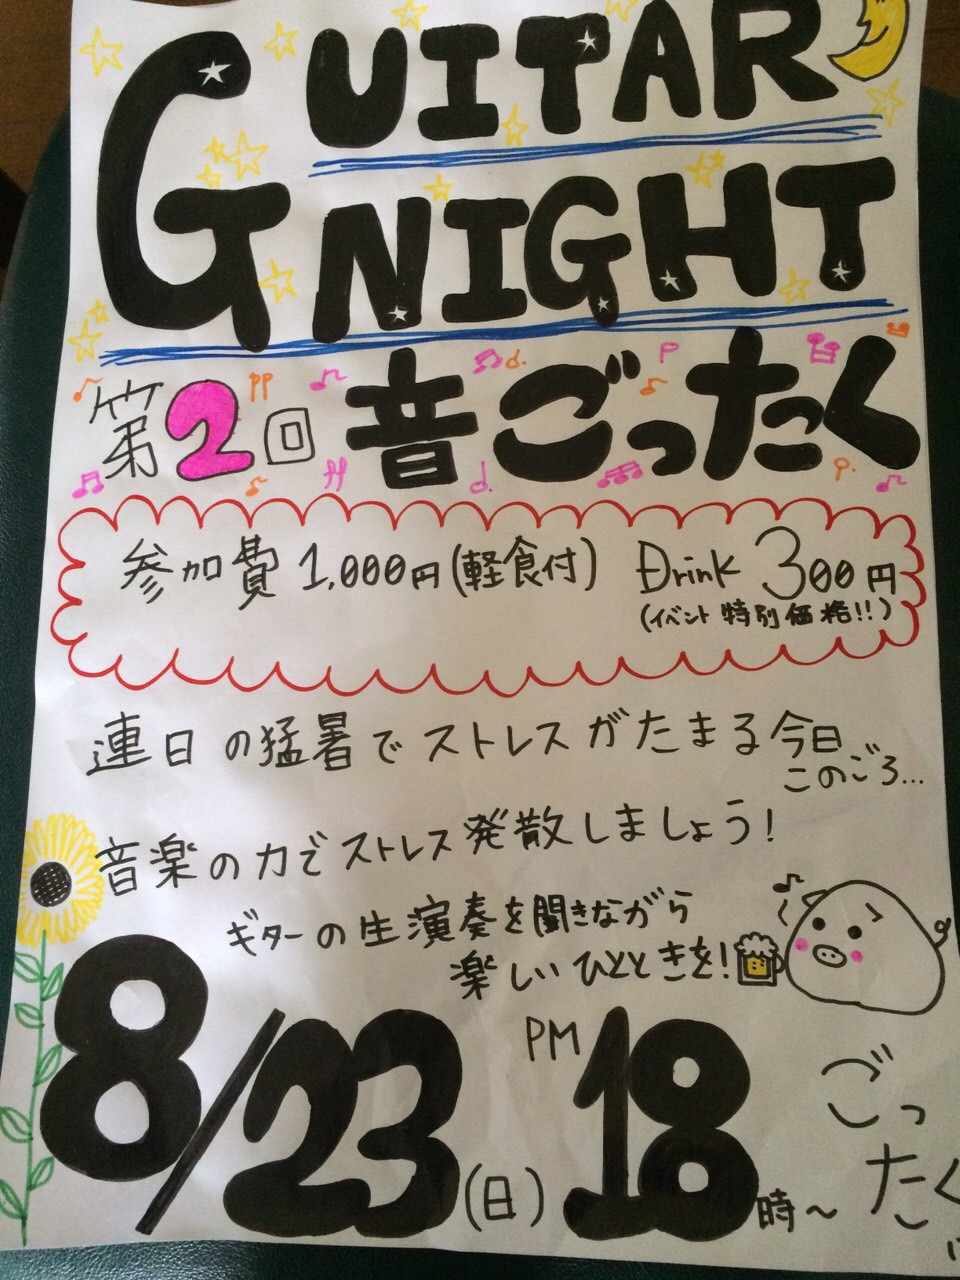 GUITAR
NIGHT
第2回 音ごったく
参加費 1,000円(軽食付) Drink 300円
(イベント特別価格!!)
連日の猛暑でストレスがたまる今日
このごろ...
音楽の力でストレス発散しましょう!
ギターの生演奏を聞きながら
楽しいひとときを!
8/23(日) PM18時~
ごっ
たく